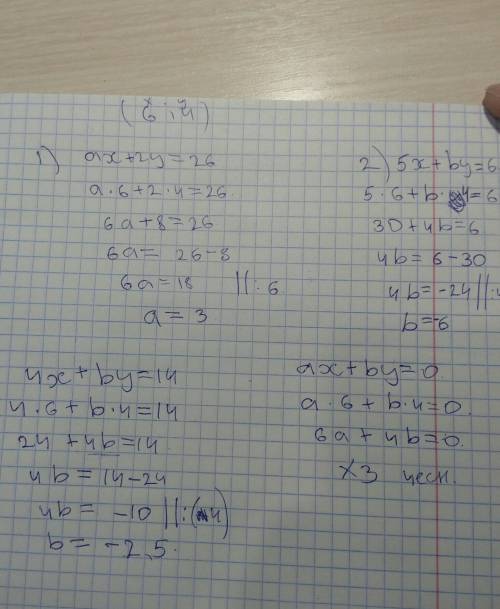 x y
(6 ; 4)
1) ax+2y=26
a·6+2·4=26
6a+8=26
6a= 26-8
6a=18 ||:6
a=3
2) 5x+by=6
5·6+b·4=6
30+4b=6
4b=6-30
4b=-24||:4
b=-6
4x+by=14
4·6+b·4=14
24+4b=14
4b=14-24
4b= -10||:(4)
b= -2,5.
ax+by=0
a·6+b·4=0.
6a+4b=0.
ХЗ чесн.